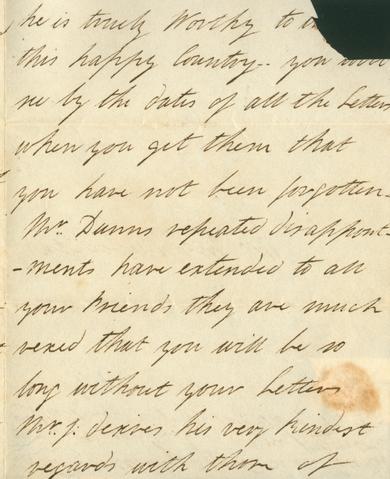 he is truly Worthy to
this happy Country-- you
by the dates of all the Letters
when you get them that
you have not been forgotten-
Mr. Danns repeated disappoint-
-ments have extended to all
your friends they are much
vexed that you will be so
long without your Letters
Mr. J: desires his very kindest
regards with those of